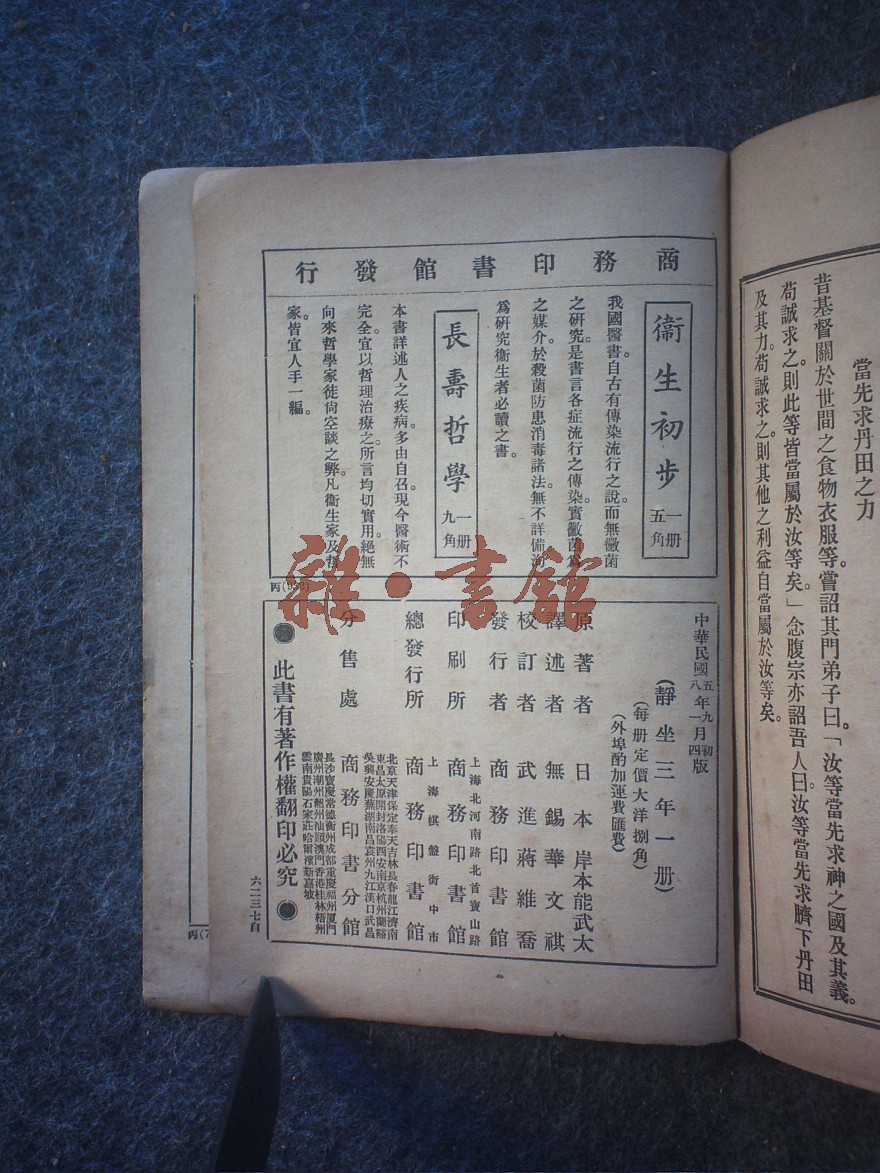 當先求丹田之力
昔基督關於世間之食物衣服等。嘗詔其門弟子曰。「汝等當先求神之國及其義。
苟誠求之。則此等皆當屬於汝等矣。」念腹宗亦詔吾人曰。汝等當先求臍下丹田
及其力。苟誠求之。則其他之利益自當屬於汝等矣。
商務印書館發行
衞生初步
一册
五角
我國醫書。自古有傳染流行之說。而無黴菌
之研究。是書言各症流行之傳染。實黴菌爲
之媒介。於殺菌防患消毒諸法。無不詳備。洵
爲研究衞生者必讀之書。
長壽哲學
一册
九角
本書詳述人之疾病。多由自召。現今醫術不
完全。宜以哲理治療之。所言均切實用。絕無
向來哲學家徒尙空談之弊。凡衞生家及哲
家皆宜人手一編。
丙(932)
中華民國五年九月初版
八年一月四版
(靜坐三年一册)
(每册定價大洋捌角)
(外埠酌加運費匯費)
原著者 日本岸本能武太
譯述者 無錫華文祺
校訂者 武進蔣維喬
發行者 商務印書館
上海北河南路北首寶山路
印刷所 商務印書館
上海棋盤街中市
總發行所 商務印書館
北京天津保定奉天吉林長春龍江濟南
東昌太原開封洛陽西安南京杭州蘭谿
吳興安慶蕪湖南昌袁州九江漢口武昌
分售處 商務印書分館
長沙寶慶常德衡州成都重慶福州厦門
廣州潮州韶州汕頭澳門香港桂林梧州
雲南貴陽石家莊哈爾濱新嘉坡
此書有著作權翻印必究
六二三七自
丙(7
雜·書館